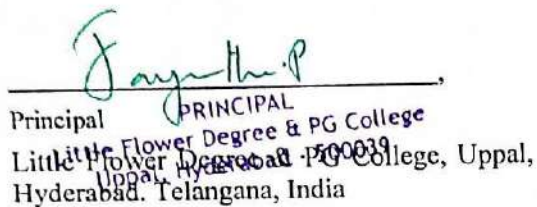 Principal
PRINCIPAL
Little Flower Degree & PG College
Uppal, Hyderabad - 500039
Little Flower Degree and PG College, Uppal,
Hyderabad. Telangana, India